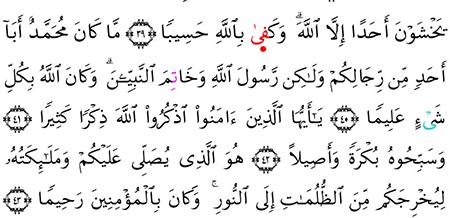 يَخْشَوْنَ أَحَدًا إِلَّا ٱللَّهَ ۗ وَكَفىٰ بِٱللَّهِ حَسِيبًا ﴿٣٩﴾ مَّا كَانَ مُحَمَّدٌ أَبَآ
أَحَدٍ مِّن رِّجَالِكُمْ وَلَٰكِن رَّسُولَ ٱللَّهِ وَخَاتِمَ ٱلنَّبِيـِٔينَ ۗ وَكَانَ ٱللَّهُ بِكُلِّ
شَىْءٍ عَلِيمًا ﴿٤٠﴾ يَـٰٓأَيُّهَا ٱلَّذِينَ ءَامَنُوا۟ ٱذْكُرُوا۟ ٱللَّهَ ذِكْرًا كَثِيرًا ﴿٤١﴾
وَسَبِّحُوهُ بُكْرَةً وَأَصِيلاً ﴿٤٢﴾ هُوَ ٱلَّذِى يُصَلِّى عَلَيْكُمْ وَمَلَـٰٓئِكَتُهُۥ
لِيُخْرِجَكُم مِّنَ ٱلظُّلُمَـٰتِ إِلَى ٱلنُّورِ ۚ وَكَانَ بِٱلْمُؤْمِنِينَ رَحِيمًا ﴿٤٣﴾